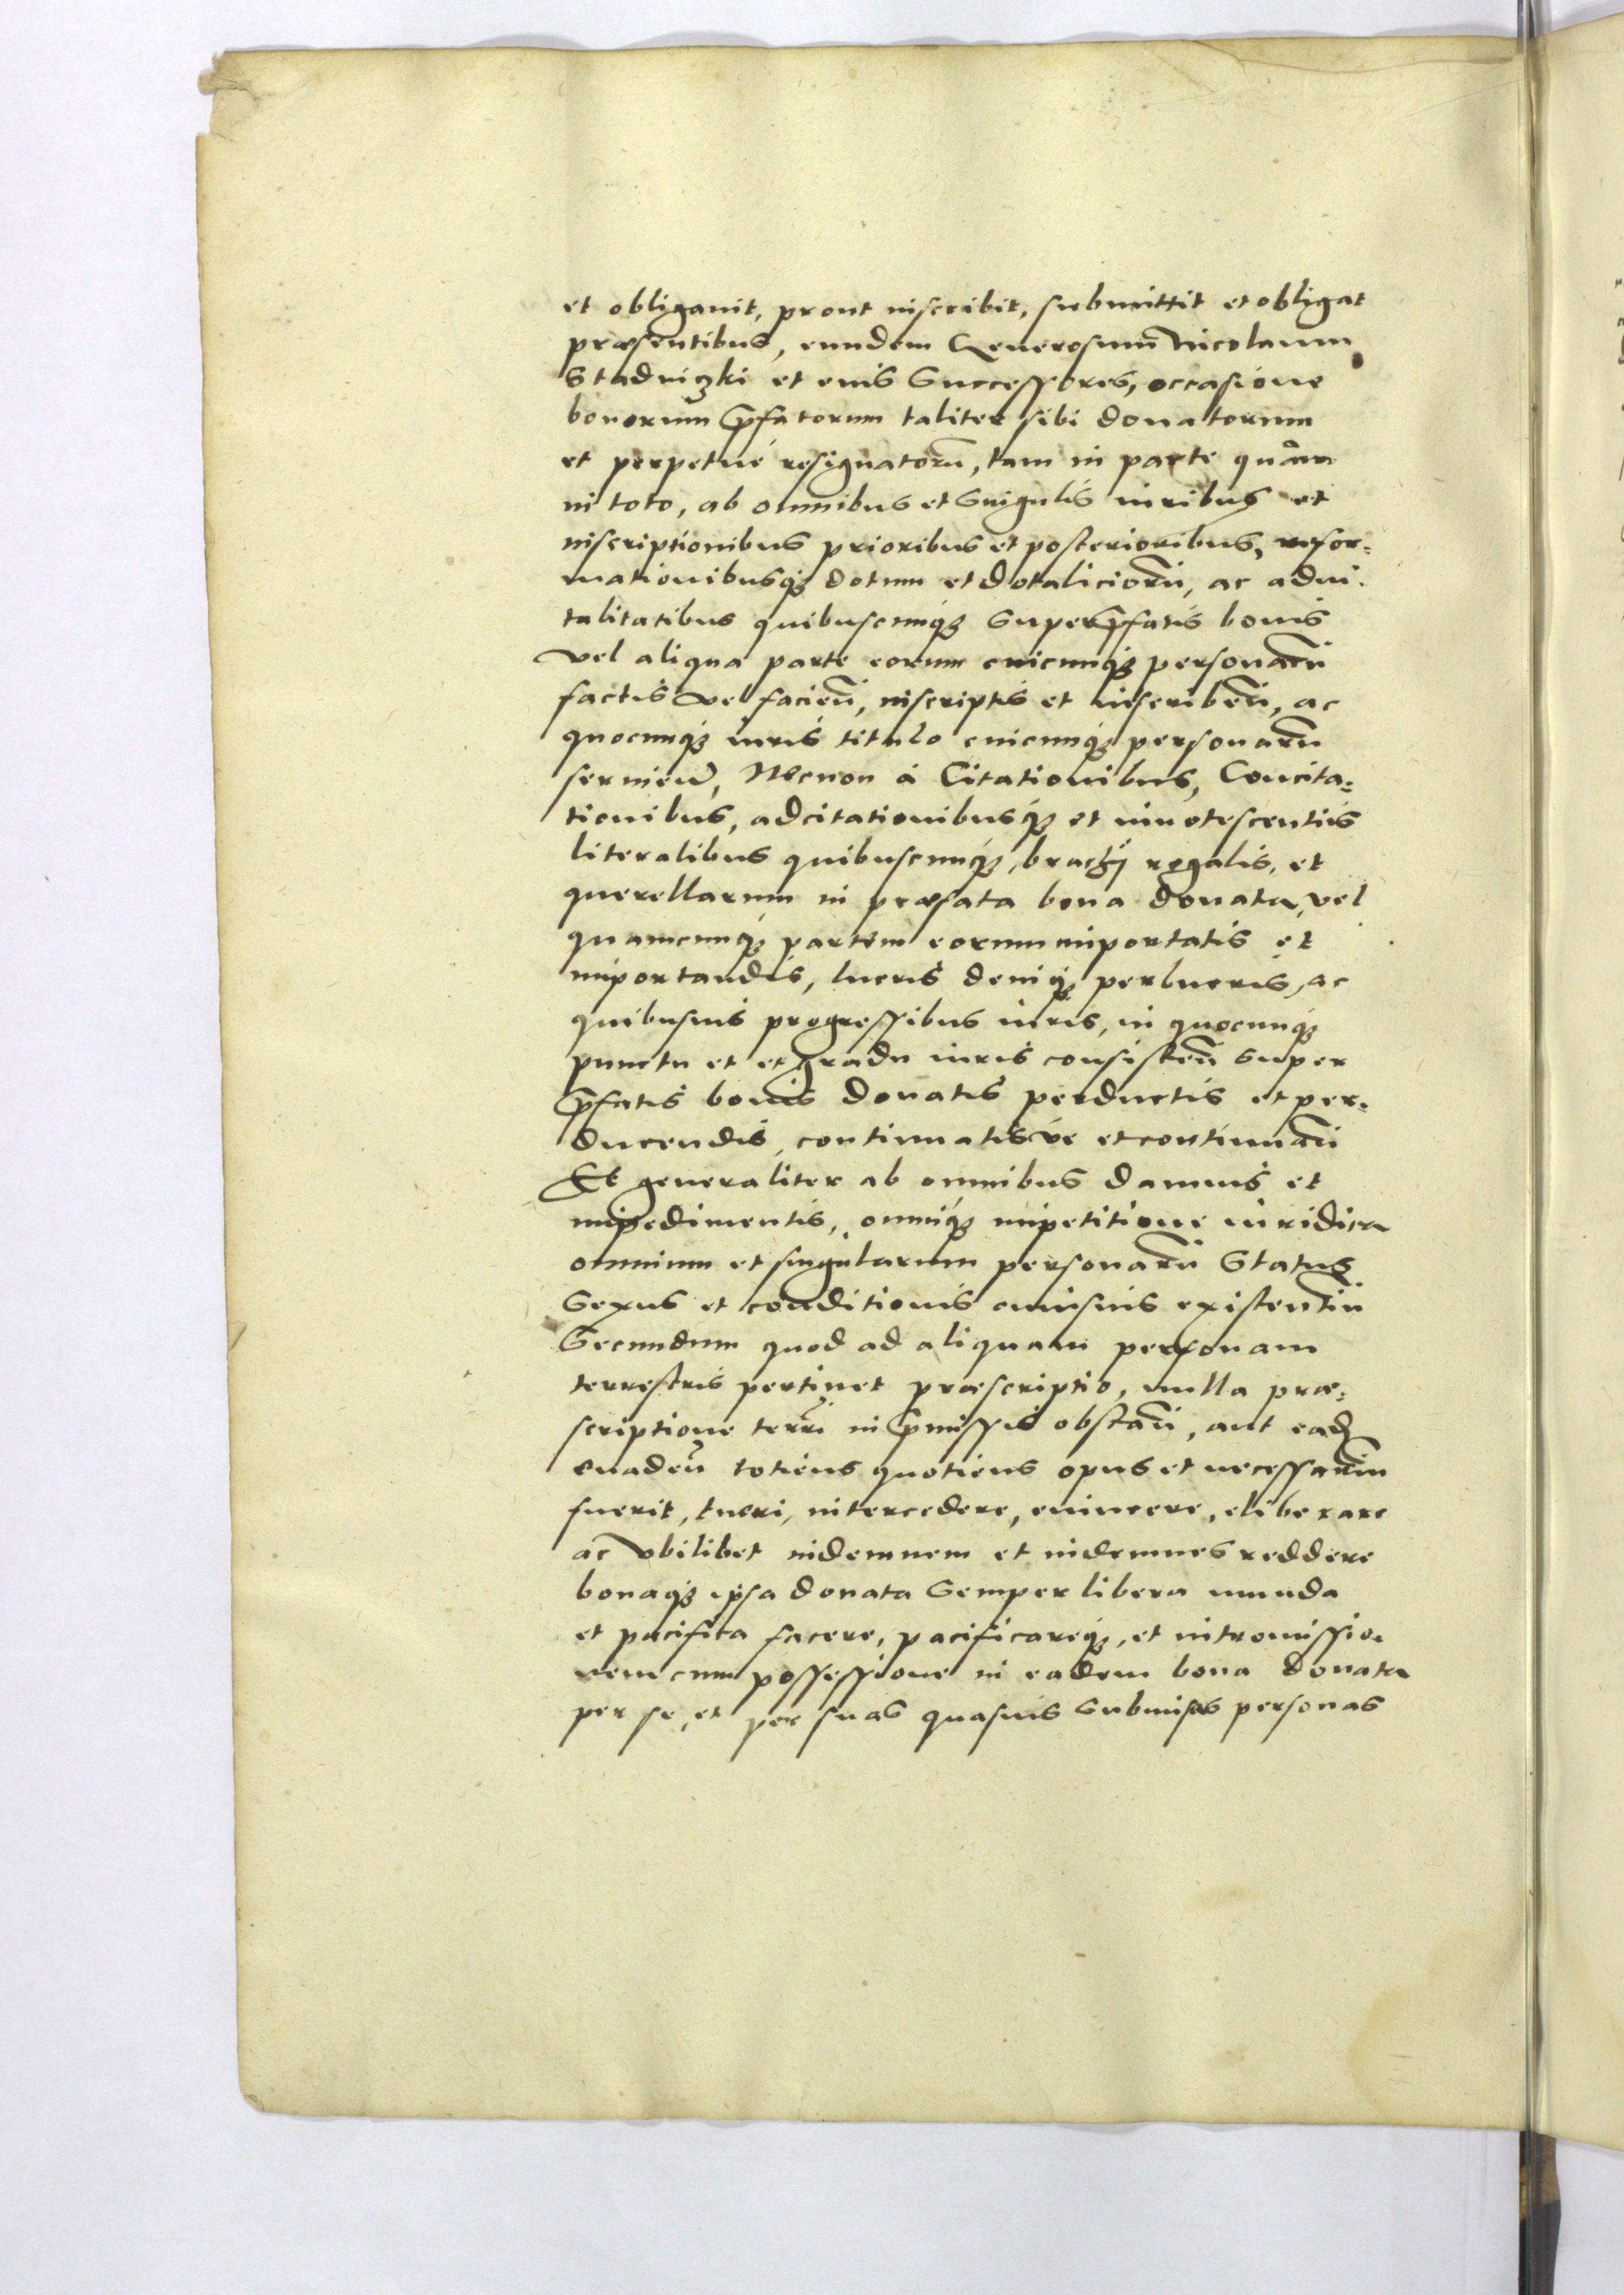 et obligauit, prout inscribit, submittit et obligat
præsentibus, eundem Generosum Nicolaum
Stadniczki et euis Successores, occasione
bonorum p̃fatorum taliter sibi donatorum
et perpetué resignatorũ, tam in parte quàm
in toto, ab omnibus et Singulis iuribus et
inscriptionibus prioribus et posterioribus, refor=
mationibusq̃ dotum et dotaliciorũ, ac adui=
talitatibus quibuscunq̃ Super p̃fatis bonis
vel aliqua parte eorum cuicunq̃ personarũ
factis vel facieñ, inscriptis et inscribeñ, ac
quocunq̃ iuris titulo cuicunq̃ personarũ
seruieñ, Necnon à Citationibus, Concita=
tionibus, adcitationibusq̃ et innotescentiis
literalibus quibuscunq̃, brachij regalis, et
querellarum in præfata bona donata, vel
quamcunq̃ partem eorum importatis et
importandis, lucris deniq̃ perlucris, ac
quibusuis progressibus iuris, in quocunq̃
punctu et et gradu iuris consisteñ Super
p̃fatis bonis donatis perductis et per=
ducendis, continuatis ve et continuañ
Et generaliter ab omnibus damnis et
impedimentis, omniq̃ impetitione iuridica
omnium et singularum personarũ Status
Sexus et conditionis cuiusuis existentiũ
Secundum quod ad aliquam personam
terrestris pertinet præscriptio, nulla præ=
scriptione terrĩ in p̃missis obstañ, aut ead̃
euadeñ totiens quotiens opus et necessariũ
fuerit, tueri, intercedere, euincere, eliberare
ac vbilibet indemnem et indemnes reddere
bonaq̃ ipsa donata Semper libera munda
et pacifica facere, pacificareq̃, et intromissio=
nem cum possessione in eadem bona donata
per se, et per suas quasuis Submisas personas